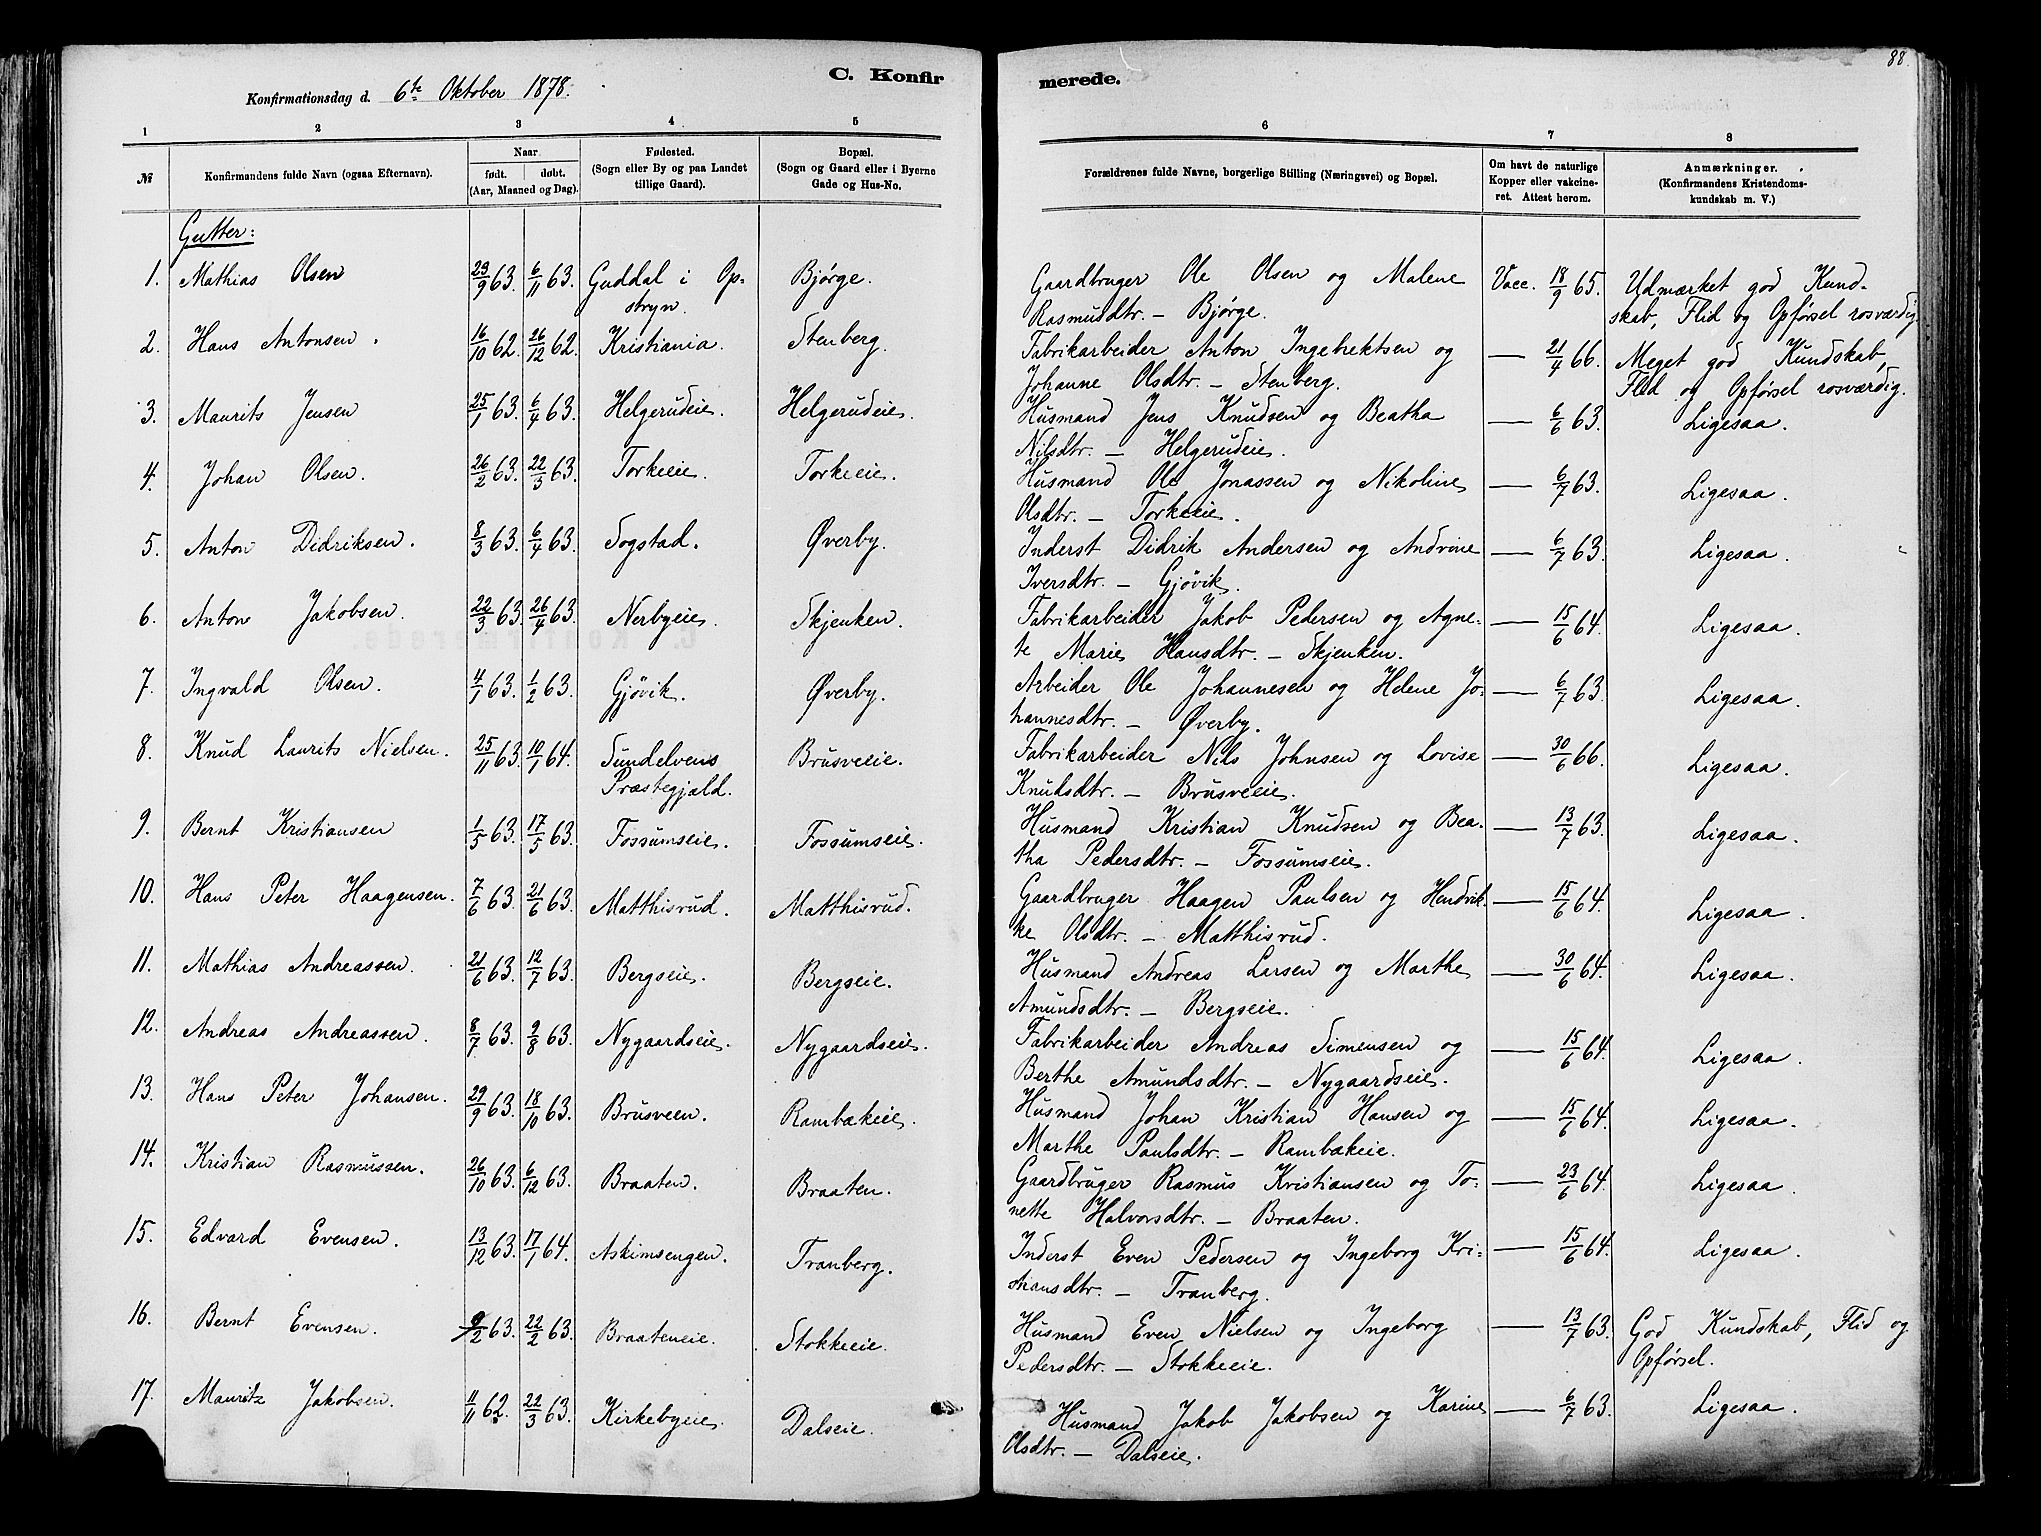 C. Konfir
merede.
88.
Konfirmationsdag d. 6te Oktober 1878.
1 2 3 4 5 6 7 8
№
Konfirmandens fulde Navn (ogsaa Efternavn).
Naar
født. døbt.
(Aar, Maaned og Dag).
Fødested.
(Sogn eller By og paa Landet
tillige Gaard).
Bopæl.
(Sogn og Gaard eller i Byerne
Gade og Hus-No.
Forældrenes fulde Navne, borgerlige Stilling (Næringsvei) og Bopæl.
Om havt de naturlige
Kopper eller vakcine-
ret. Attest herom.
Anmærkninger.
(Konfirmandens Kristendoms-
kundskab m. V.)
Gutter:
1. Mathias Olsen 29/9 63. 6/11 63. Guddal i Op- Bjørge. Gaardbruger Ole Olsen og Malene Vacc. 18/9 65. Udmærket god Kund-
stryn. Rasmusdtr. – Bjørge. skab, Flid og Opførsel rosværdig
2. Hans Antonsen. 16/10 62. 26/12 62. Kristiania. Stenberg. Fabrikarbeider Anton Ingebrektsen og — 21/4 66. Meget god Kundskab,
Johanne Olsdtr. – Stenberg. Flid og Opførsel rosværdig.
3. Maurits Jensen 25/1 63. 6/4 63. Helgerudeie. Helgerudeie. Husmand Jens Knudsen og Beatha — 6/6 63. Ligesaa.
Nilsdtr. – Helgerudeie.
4. Johan Olsen. 26/2 63. 22/3 63. Torkeeie. Torkeeie. Husmand Ole Jonassen og Nikoline — 6/7 63. Ligesaa.
Olsdtr. – Torkeeie.
5. Anton Didriksen. 8/3 63. 6/4 63. Sogstad. Øverby. Inderst Didrik Andersen og Andrine — 6/7 63. Ligesaa.
Iversdtr. – Gjøvik.
6. Anton Jakobsen. 22/3 63. 26/4 63. Nerbyeie. Skjenken. Fabrikarbeider Jakob Pedersen og Agne- — 15/6 64. Ligesaa.
te Marie Hansdtr. – Skjenken.
7. Ingvald Olsen. 4/1 63. 1/2 63. Gjøvik. Øverby. Arbeider Ole Johannesen og Helene Jo- — 6/7 63. Ligesaa.
hannesdtr. – Øverby.
8. Knud Laurits Nielsen. 25/11 63. 10/1 64. Sundelvens Brusveeie. Fabrikarbeider Nils Johnsen og Lovise — 30/6 66. Ligesaa.
Præstegjæld. Knudsdtr. – Brusveeie.
9. Bernt Kristiansen 1/5 63. 17/5 63. Fossumseie. Fossumseie. Husmand Kristian Knudsen og Bea- — 13/7 63. Ligesaa.
tha Pedersdtr. – Fossumseie.
10. Hans Peter Haagensen. 7/6 63. 21/6 63. Matthisrud. Matthisrud. Gaardbruger Haagen Paulsen og Hendrik- — 15/6 64. Ligesaa.
ke Olsdtr. – Matthisrud.
11. Mathias Andreassen. 21/6 63. 12/7 63. Bergseie. Bergseie. Husmand Andreas Larsen og Marthe — 30/6 64. Ligesaa.
Amundsdtr. – Bergseie.
12. Andreas Andreassen. 8/7 63. 9/8 63. Nygaardseie. Nygaardseie. Fabrikarbeider Andreas Simensen og — 15/6 64. Ligesaa.
Berthe Amundsdtr. – Nygaardseie.
13. Hans Peter Johansen. 29/9 63. 18/10 63. Brusveen. Rambækeie. Husmand Johan Kristian Hansen og — 15/6 64. Ligesaa.
Marthe Paulsdtr. – Rambækeie.
14. Kristian Rasmussen. 26/10 63. 6/12 63. Braaten. Braaten. Gaardbruger Rasmus Kristiansen og To- — 23/6 64. Ligesaa.
nette Halvorsdtr. – Braaten.
15. Edvard Evensen. 13/12 63. 17/1 64. Askimsengen. Tranberg. Inderst Even Pedersen og Ingeborg Kri- — 15/6 64. Ligesaa.
stiansdtr. – Tranberg.
16. Bernt Evensen. 9/2 63. 22/2 63. Braateneie. Stokkeeie. Husmand Even Nielsen og Ingeborg — 13/7 63. God Kundskab, Flid og
Pedersdtr. – Stokkeeie. Opførsel.
17. Mauritz Jakobsen. 11/11 62. 22/3 63. Kirkebyeie. Dalseie. Husmand Jakob Jakobsen og Karine — 6/7 63. Ligesaa.
Olsdtr. – Dalseie.